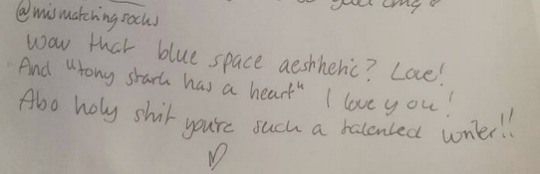 @mismatchingsocks
Wow that blue space aesthetic? Love!
And "tony stark has a heart" I love you!
Also holy shit you're such a talented writer!!